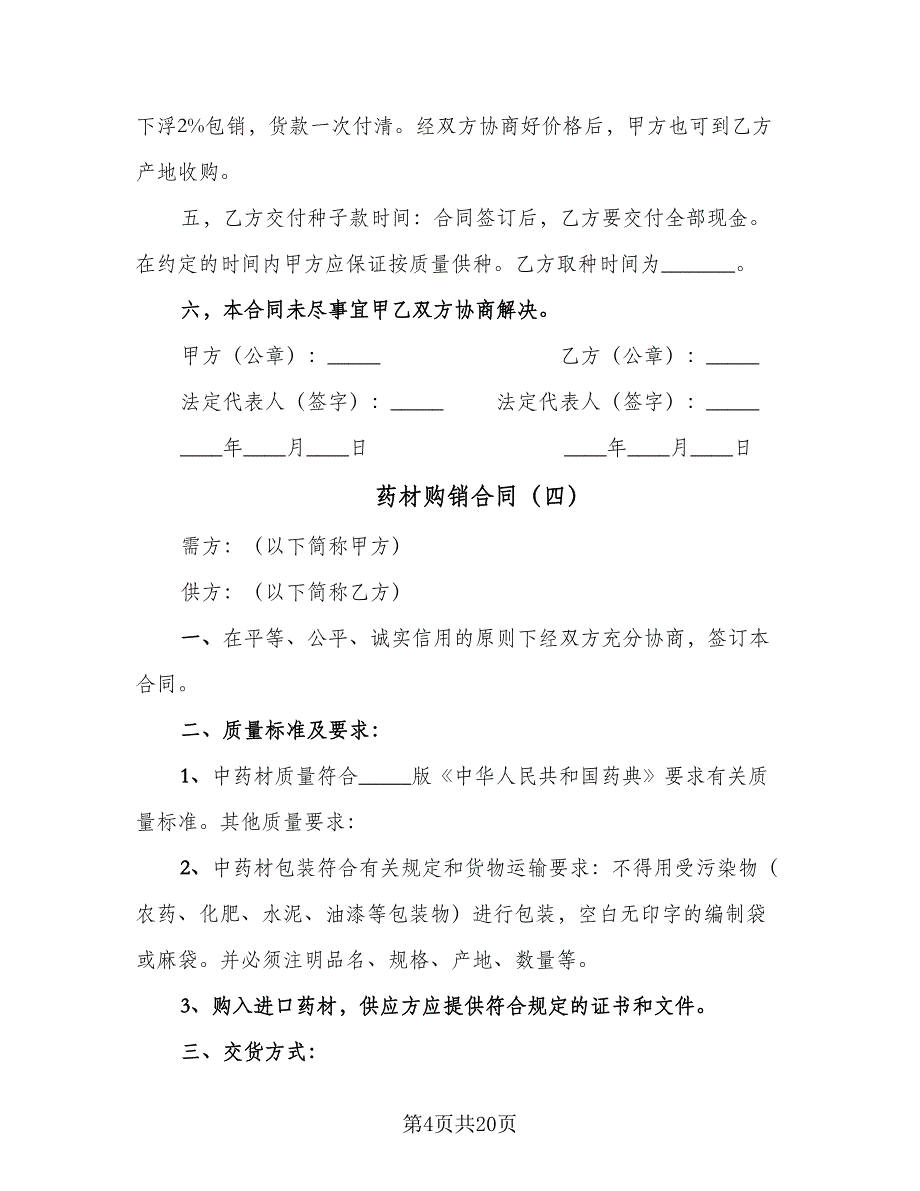 下浮2%包销，货款一次付清。经双方协商好价格后，甲方也可到乙方
产地收购。
五，乙方交付种子款时间：合同签订后，乙方要交付全部现金。
在约定的时间内甲方应保证按质量供种。乙方取种时间为_______。
六，本合同未尽事宜甲乙双方协商解决。
甲方（公章）：_____ 乙方（公章）：_____
法定代表人（签字）：_____ 法定代表人（签字）：_____
____年____月____日 ____年____月____日
药材购销合同（四）
需方：（以下简称甲方）
供方：（以下简称乙方）
一、在平等、公平、诚实信用的原则下经双方充分协商，签订本
合同。
二、质量标准及要求：
1、中药材质量符合_____版《中华人民共和国药典》要求有关质
量标准。其他质量要求：
2、中药材包装符合有关规定和货物运输要求：不得用受污染物（
农药、化肥、水泥、油漆等包装物）进行包装，空白无印字的编制袋
或麻袋。并必须注明品名、规格、产地、数量等。
3、购入进口药材，供应方应提供符合规定的证书和文件。
三、交货方式：
第4页共20页